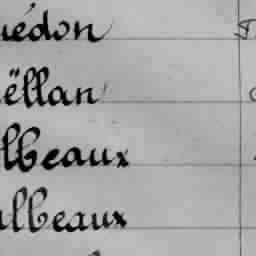 uédon
ëllan
lbeaux
albeaux